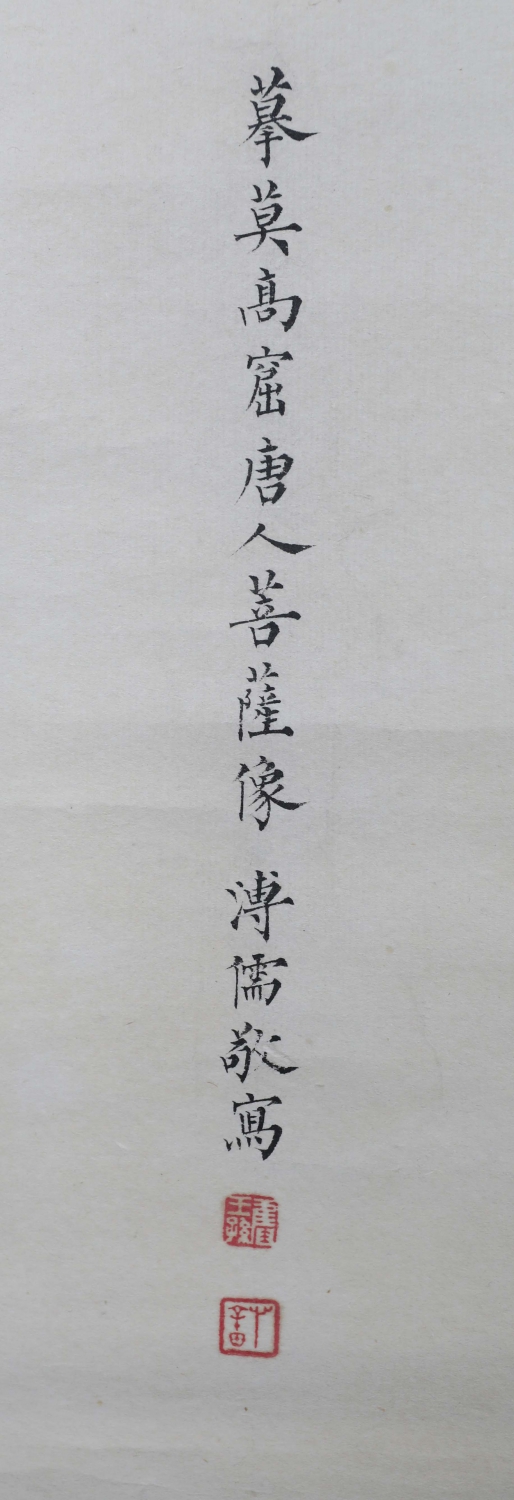 摹莫高窟唐人菩薩像 溥儒敬寫
舊王孫